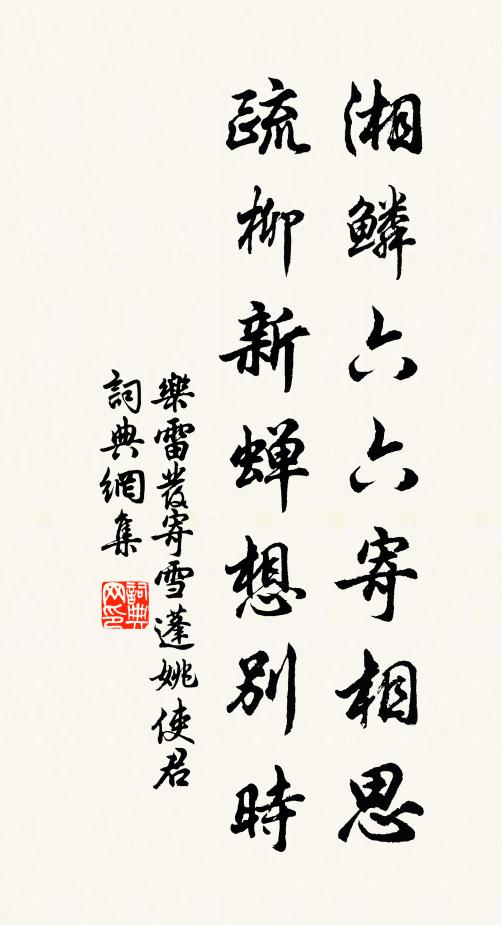 湘鱗六六寄相思
疏柳新蝉想別時
樂雷發寄雪蓬姚使君
詞典網集
詞典网印